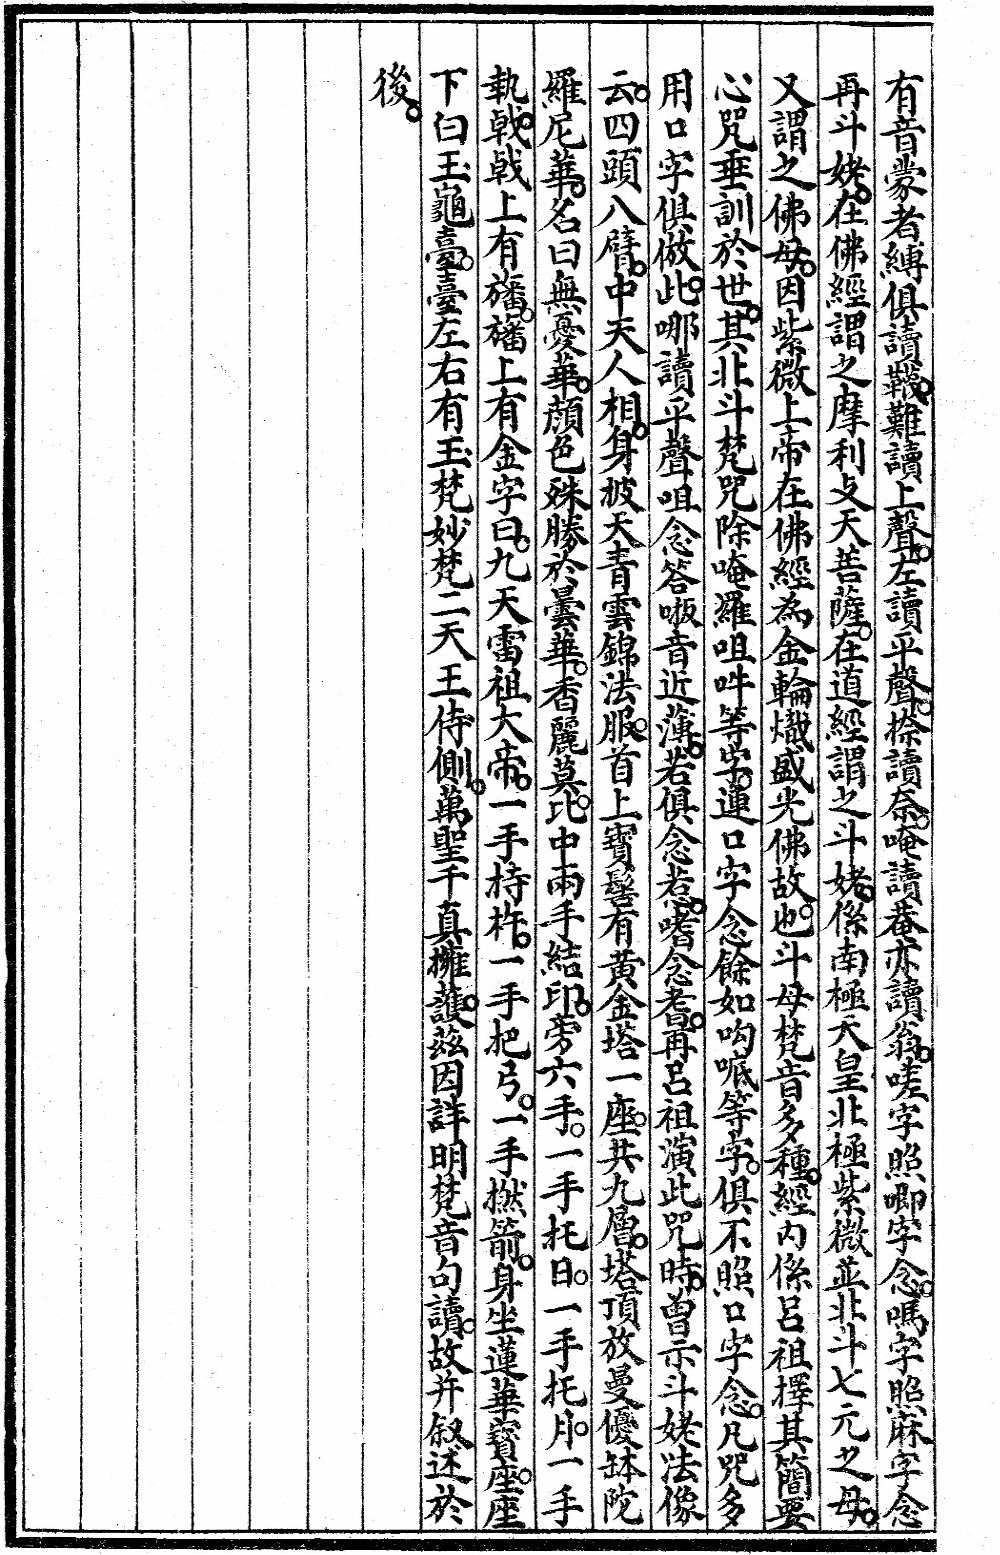 有音蒙者縛俱讀韈難讀上聲。左讀平聲。捺讀奈。唵讀菴亦讀翁。嗟字照唧字念。嗎字照麻字念
再斗姥。在佛經謂之摩利支天菩薩。在道經謂之斗姥。係南極天皇北極紫微並北斗七元之母。
又謂之佛母。因紫微上帝在佛經為金輪熾盛光佛故也。斗母梵音多種。經內係呂祖擇其簡要
心咒垂訓於世。其北斗梵咒除唵羅咀吽等字。連口字念餘如呴呧等字。俱不照口字念。凡咒多
用口字俱倣此。哪讀平聲咀念答𠶹音近薄。若俱念惹。嗜念耆。再呂祖演此咒時。曾示斗姥法像
云。四頭八臂。中天人相。身披天青雲錦法服。首上寶髻有黃金塔一座。共九層。塔頂放曼優缽陀
羅尼華。名曰無憂華。顏色殊勝於曇華。香麗莫比。中兩手結印。旁六手。一手托日。一手托月。一手
執戟。戟上有旛。旛上有金字曰。九天雷祖大帝。一手持杵。一手把弓。一手撚箭。身坐蓮華寶座。座
下曰玉龜臺。臺左右有玉梵妙梵二天王侍側。萬聖千真擁護。茲因註明梵音句讀。故并叙述於
後。